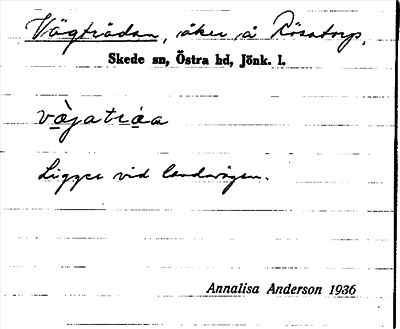 Vägträdan, åker å Rösatorp,
Skede sn, Östra hd, Jönk. l.
Ligger vid landsvägen.
Annalisa Anderson 1936